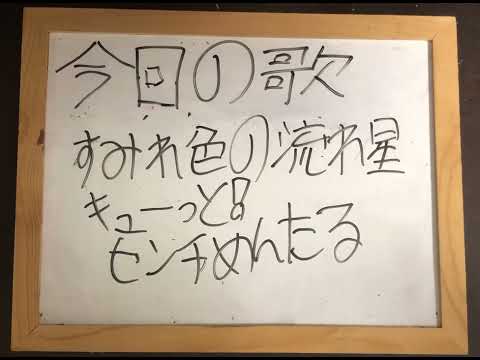 今回の歌
すみれ色の流れ星
キューっと!
センチめんたる